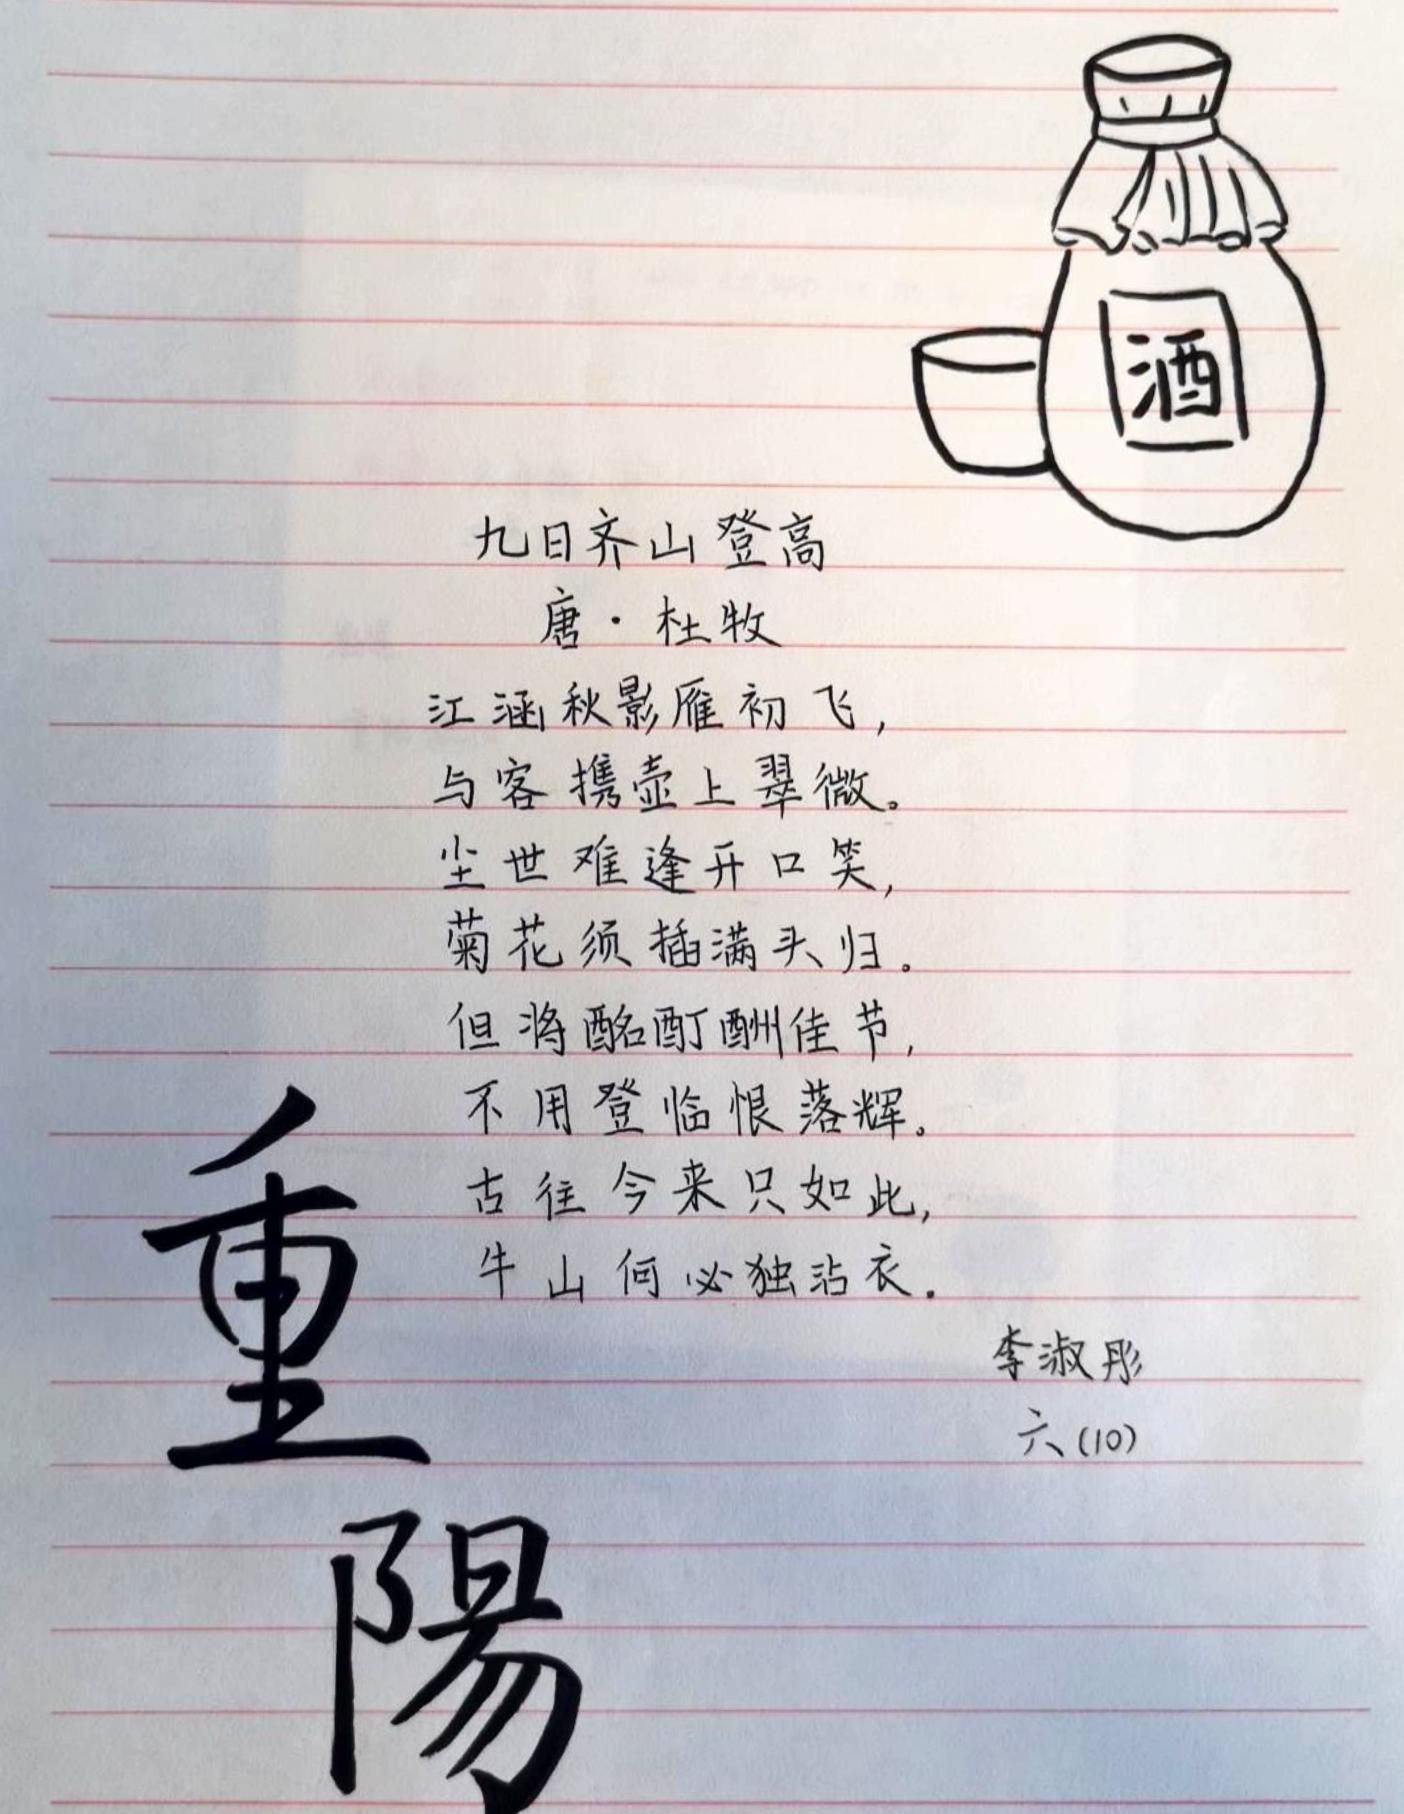 酒
九日齐山登高
唐·杜牧
江涵秋影雁初飞，
与客携壶上翠微。
尘世难逢开口笑，
菊花须插满头归。
但将酩酊酬佳节，
不用登临恨落辉。
古往今来只如此，
牛山何必独沾衣.
李淑彤
六(10)
重
陽